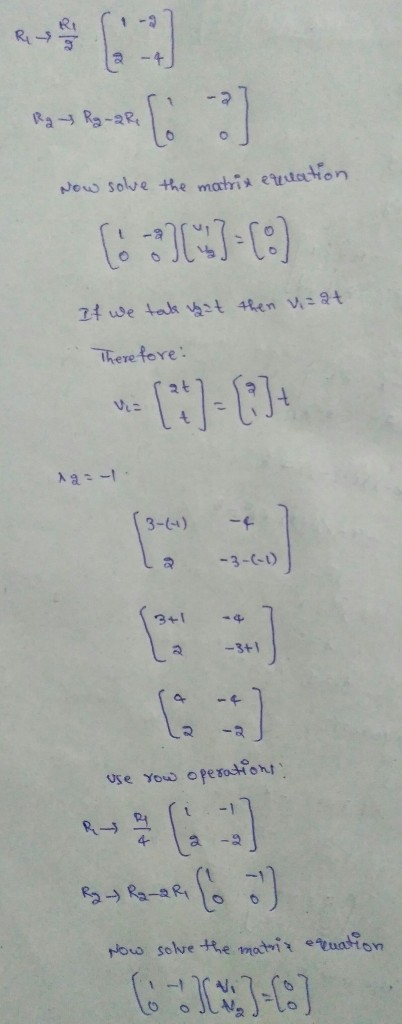 R1 → R1/2 [1 -2; 2 -4]
R2 → R2-2R1 [1 -2; 0 0]
Now solve the matrix equation
[1 -2; 0 0][v1; v2]=[0; 0]
If we tak v2=t then v1=2t
Therefore:
v1= [2t; t]=[2; 1]t
λ2=-1
[3-(-1) -4; 2 -3-(-1)]
[3+1 -4; 2 -3+1]
[4 -4; 2 -2]
use row operations:
R1→ R1/4 [1 -1; 2 -2]
R2→ R2-2R1 [1 -1; 0 0]
Now solve the matrix equation
[1 -1; 0 0][v1; v2]=[0; 0]